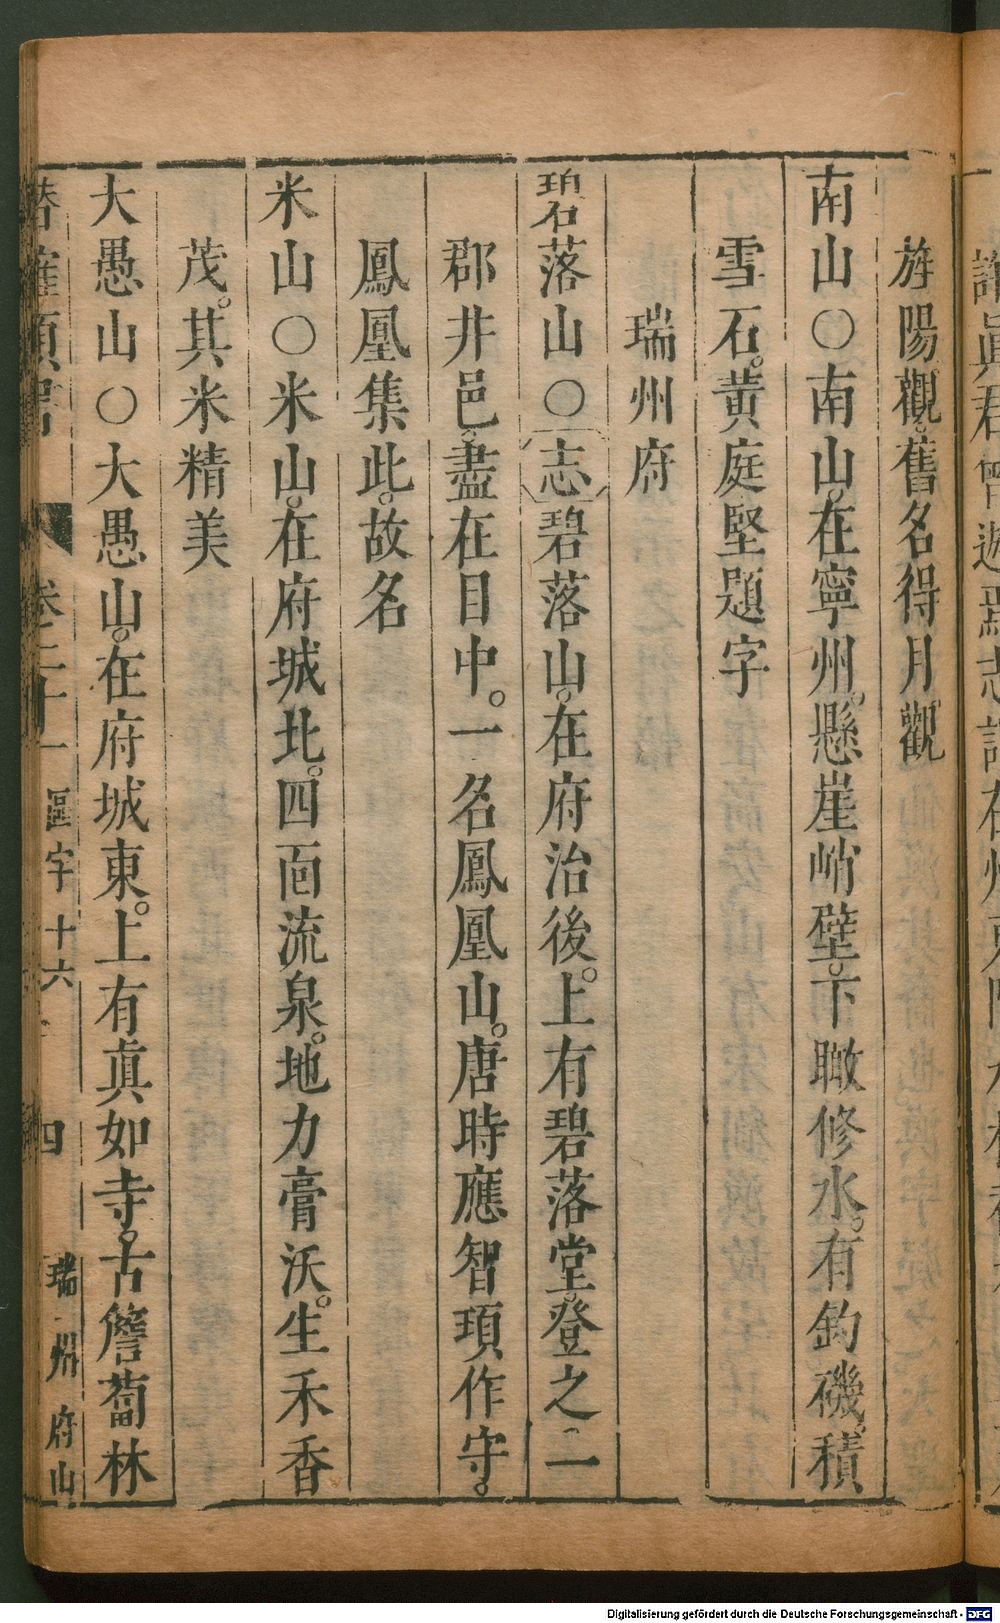 旌陽觀。舊名得月觀
南山〇南山。在寧州。懸崖峭壁。下瞰修水。有釣磯。積
雪石。黃庭堅題字
瑞州府
碧落山〇志碧落山。在府治後。上有碧落堂。登之二
郡井邑。盡在目中。一名鳳凰山。唐時應智頊作守。
鳳凰集此。故名
米山〇米山。在府城北。四面流泉。地力膏沃。生禾香
茂。其米精美
大愚山〇大愚山。在府城東。上有眞如寺。古簷蔔林
卷二十一 區字十六 四 瑞州府山
Digitalisierung gefördert durch die Deutsche Forschungsgemeinschaft - DFG